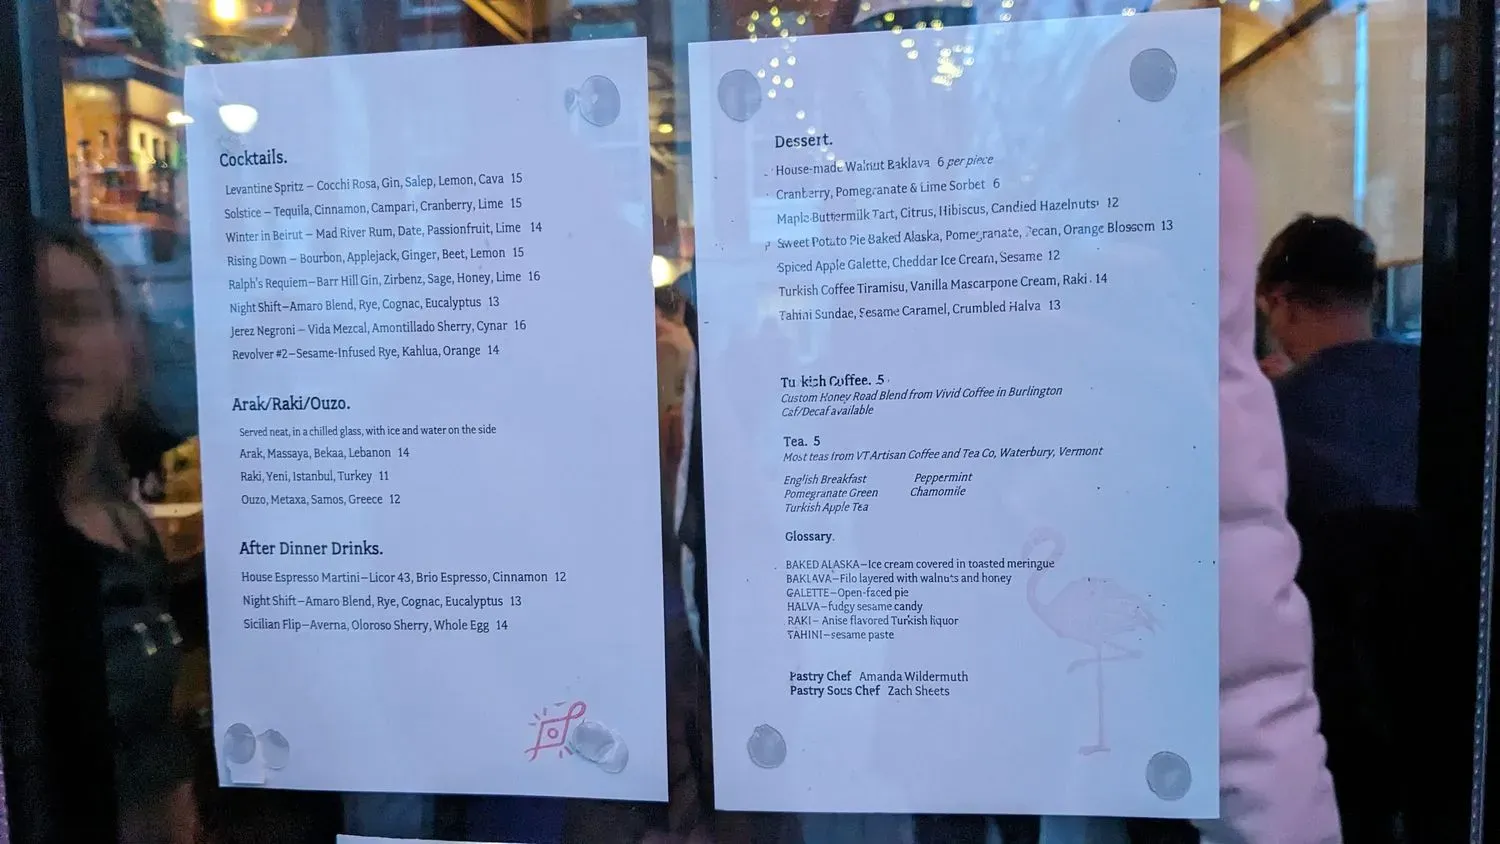 Cocktails.
Levantine Spritz – Cocchi Rosa, Gin, Salep, Lemon, Cava 15
Solstice – Tequila, Cinnamon, Campari, Cranberry, Lime 15
Winter in Beirut – Mad River Rum, Date, Passionfruit, Lime 14
Rising Down – Bourbon, Applejack, Ginger, Beet, Lemon 15
Ralph's Requiem–Barr Hill Gin, Zirbenz, Sage, Honey, Lime 16
Night Shift–Amaro Blend, Rye, Cognac, Eucalyptus 13
Jerez Negroni – Vida Mezcal, Amontillado Sherry, Cynar 16
Revolver #2–Sesame-Infused Rye, Kahlua, Orange 14
Arak/Raki/Ouzo.
Served neat, in a chilled glass, with ice and water on the side
Arak, Massaya, Bekaa, Lebanon 14
Raki, Yeni, Istanbul, Turkey 11
Ouzo, Metaxa, Samos, Greece 12
After Dinner Drinks.
House Espresso Martini–Licor 43, Brio Espresso, Cinnamon 12
Night Shift–Amaro Blend, Rye, Cognac, Eucalyptus 13
Sicilian Flip–Averna, Oloroso Sherry, Whole Egg 14
Dessert.
House-made Walnut Baklava 6 per piece
Cranberry, Pomegranate & Lime Sorbet 6
Maple Buttermilk Tart, Citrus, Hibiscus, Candied Hazelnuts 12
Sweet Potato Pie Baked Alaska, Pomegranate, Pecan, Orange Blossom 13
Spiced Apple Galette, Cheddar Ice Cream, Sesame 12
Turkish Coffee Tiramisu, Vanilla Mascarpone Cream, Raki 14
Tahini Sundae, Sesame Caramel, Crumbled Halva 13
Turkish Coffee. 5
Custom Honey Road Blend from Vivid Coffee in Burlington
Caf/Decaf available
Tea. 5
Most teas from VT Artisan Coffee and Tea Co, Waterbury, Vermont
English Breakfast Peppermint
Pomegranate Green Chamomile
Turkish Apple Tea
Glossary.
BAKED ALASKA–Ice cream covered in toasted meringue
BAKLAVA–Filo layered with walnuts and honey
GALETTE–Open-faced pie
HALVA–fudgy sesame candy
RAKI– Anise flavored Turkish liquor
TAHINI–sesame paste
Pastry Chef Amanda Wildermuth
Pastry Sous Chef Zach Sheets